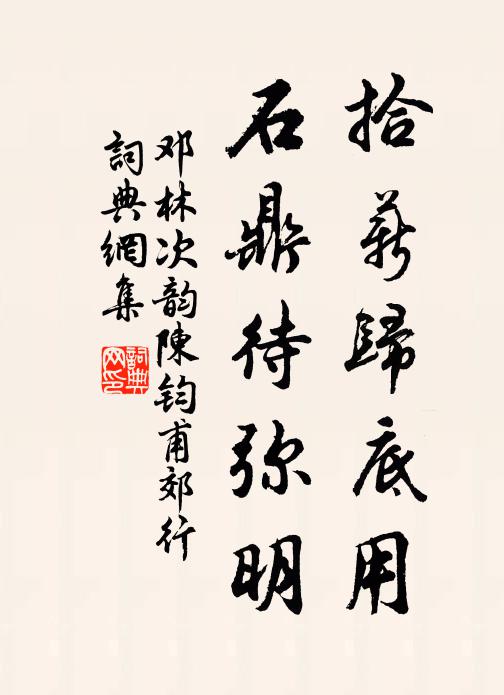 拾薪歸底用
石鼎待弥明
邓林次韵陳钧甫郊行
詞典網集
詞典网印